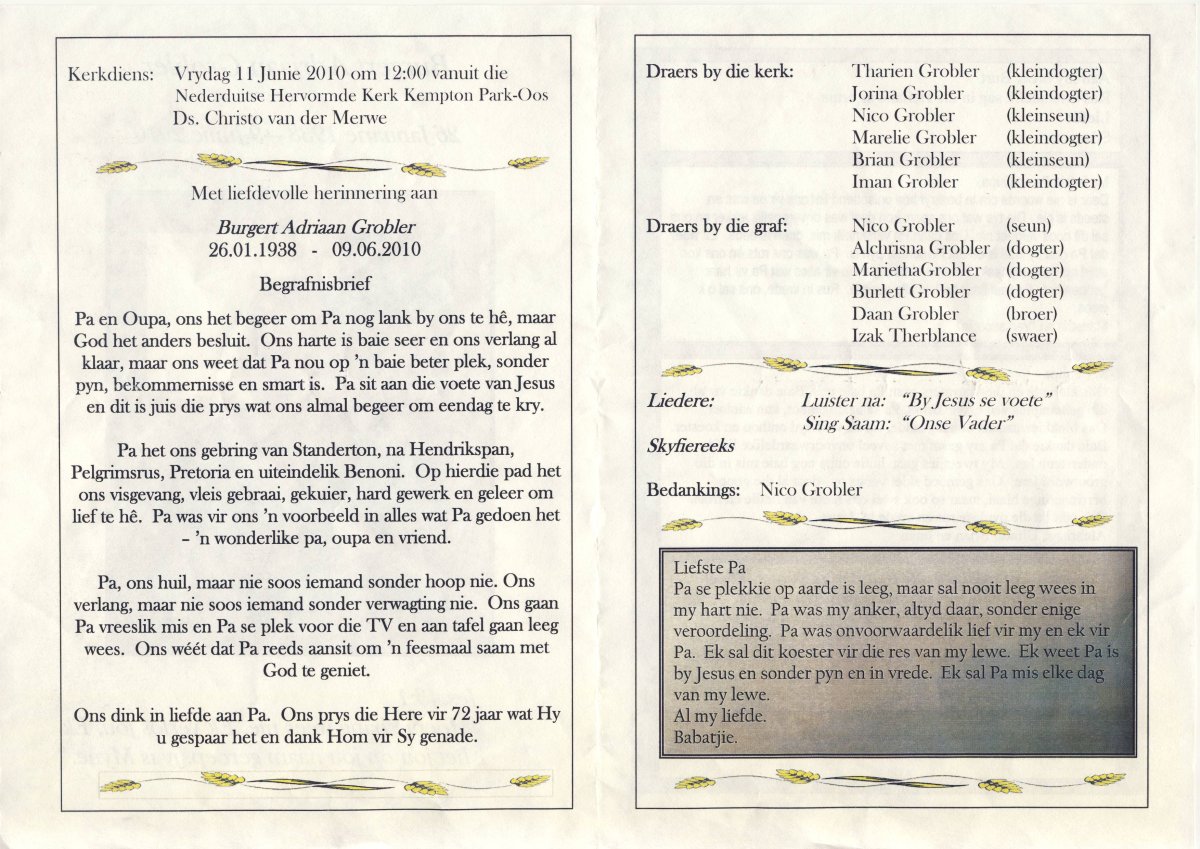 Kerkdiens: Vrydag 11 Junie 2010 om 12:00 vanuit die
Nederduitse Hervormde Kerk Kempton Park-Oos
Ds. Christo van der Merwe
Met liefdevolle herinnering aan
Burgert Adriaan Grobler
26.01.1938 - 09.06.2010
Begrafnisbrief
Pa en Oupa, ons het begeer om Pa nog lank by ons te hê, maar
God het anders besluit. Ons harte is baie seer en ons verlang al
klaar, maar ons weet dat Pa nou op 'n baie beter plek, sonder
pyn, bekommernisse en smart is. Pa sit aan die voete van Jesus
en dit is juis die prys wat ons almal begeer om eendag te kry.
Pa het ons gebring van Standerton, na Hendrikspan,
Pelgrimsrus, Pretoria en uiteindelik Benoni. Op hierdie pad het
ons visgevang, vleis gebraai, gekuier, hard gewerk en geleer om
lief te hê. Pa was vir ons 'n voorbeeld in alles wat Pa gedoen het
– 'n wonderlike pa, oupa en vriend.
Pa, ons huil, maar nie soos iemand sonder hoop nie. Ons
verlang, maar nie soos iemand sonder verwagting nie. Ons gaan
Pa vreeslik mis en Pa se plek voor die TV en aan tafel gaan leeg
wees. Ons wéét dat Pa reeds aansit om 'n feesmaal saam met
God te geniet.
Ons dink in liefde aan Pa. Ons prys die Here vir 72 jaar wat Hy
u gespaar het en dank Hom vir Sy genade.
Draers by die kerk: Tharien Grobler (kleindogter)
Jorina Grobler (kleindogter)
Nico Grobler (kleinseun)
Marelie Grobler (kleindogter)
Brian Grobler (kleinseun)
Iman Grobler (kleindogter)
Draers by die graf: Nico Grobler (seun)
Alchrisna Grobler (dogter)
MariethaGrobler (dogter)
Burlett Grobler (dogter)
Daan Grobler (broer)
Izak Therblance (swaer)
Liedere: Luister na: “By Jesus se voete”
Sing Saam: “Onse Vader”
Skyfiereeks
Bedankings: Nico Grobler
Liefste Pa
Pa se plekkie op aarde is leeg, maar sal nooit leeg wees in
my hart nie. Pa was my anker, altyd daar, sonder enige
veroordeling. Pa was onvoorwaardelik lief vir my en ek vir
Pa. Ek sal dit koester vir die res van my lewe. Ek weet Pa is
by Jesus en sonder pyn en in vrede. Ek sal Pa mis elke dag
van my lewe.
Al my liefde.
Babatjie.